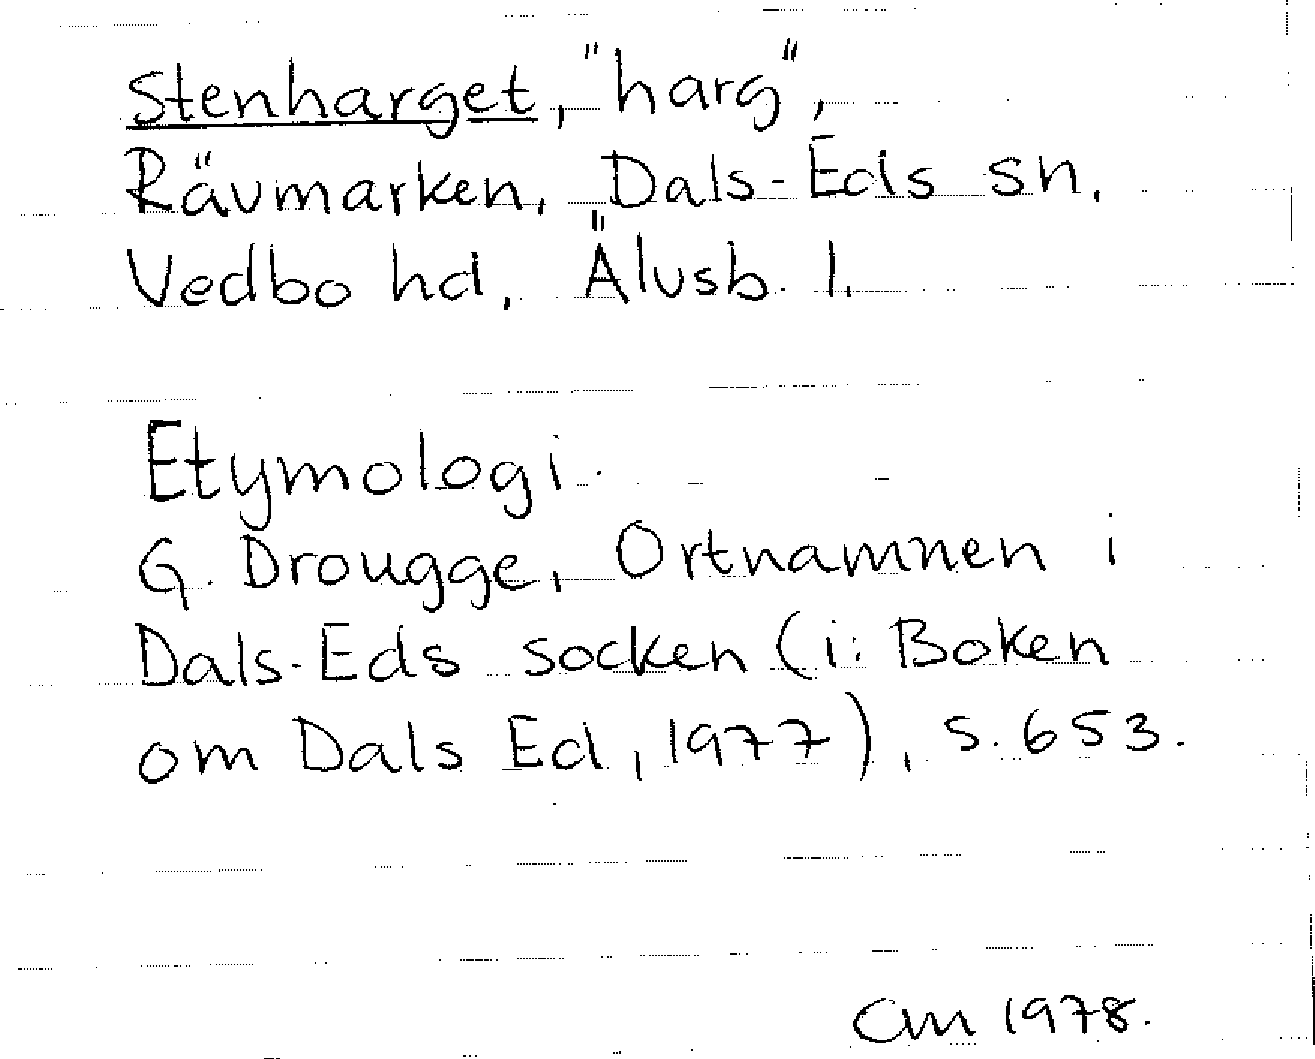 Stenharget, "harg",
Rävmarken, Dals-Eds sn,
Vedbo hd, Älvsb. l.
Etymologi.
G. Drougge, Ortnamnen i
Dals-Eds socken (i: Boken
om Dals Ed, 1977), s. 653.
CM 1978.